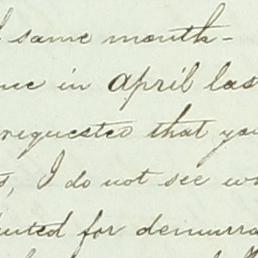 same month-
in april las
requested that you
, I do not see w
for demurra